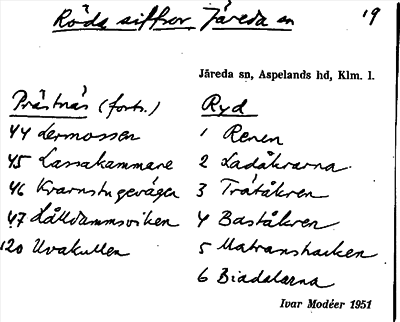 Röda siffror Järeda sn 19
Järeda sn, Aspelands hd, Klm. l.
Prästnäs (forts.)
44 Lermossen
45 Lassakammare
46 Kvarnstugevägen
47 Lålldammsviken
120 Uvakullen
Ryd
1 Renen
2 Ladåkrarna
3 Tråtåkren
4 Baståkren
5 Matransbacken
6 Biadalarna
Ivar Modéer 1951